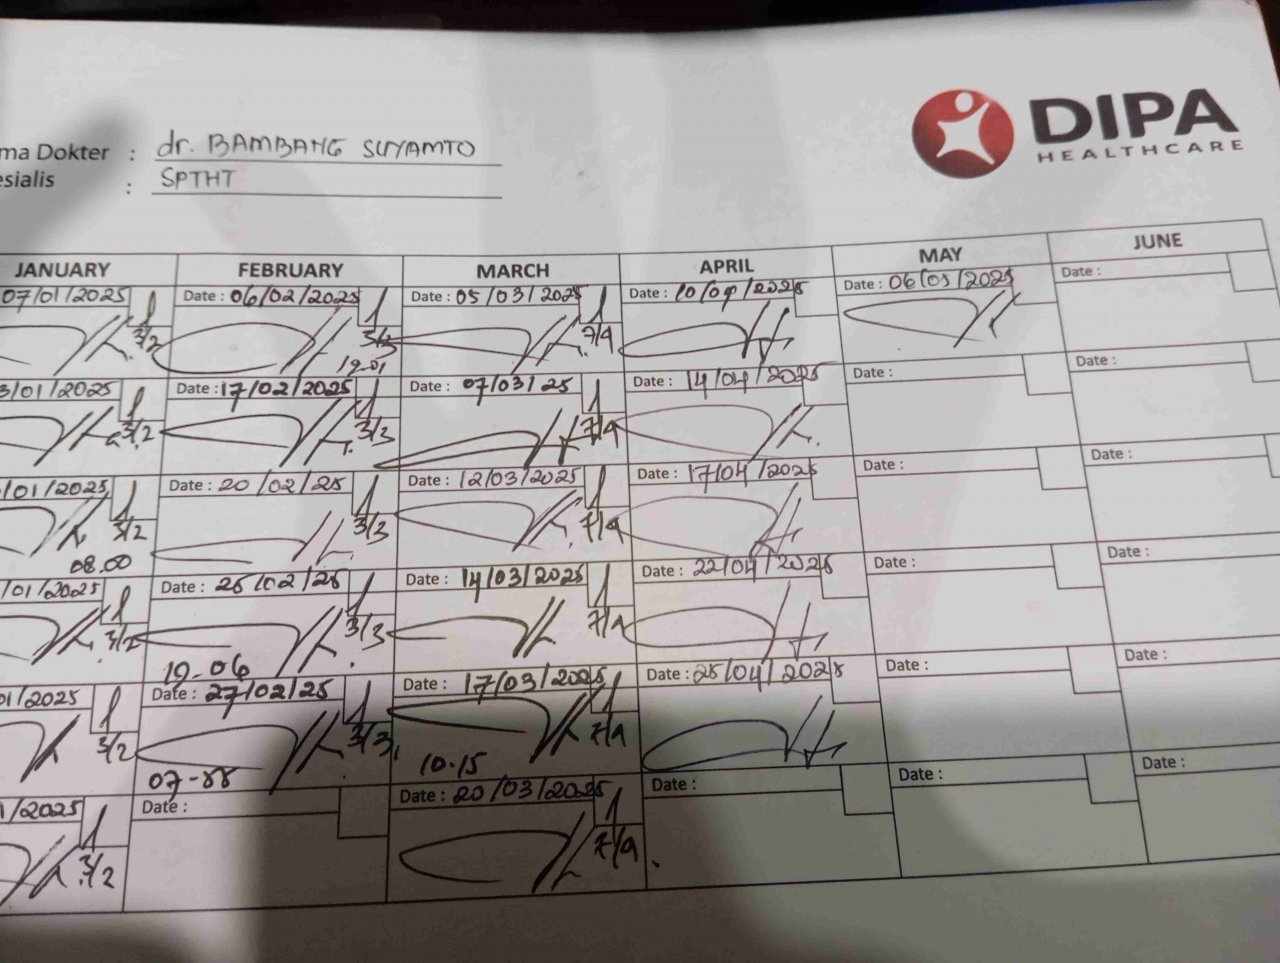 DIPA
HEALTHCARE
ma Dokter : dr. BAMBANG SUYAMTO
esialis : SPTHT
JANUARY FEBRUARY MARCH APRIL MAY JUNE
07/01/2025 Date : 06/02/2025 Date : 05/03/2025 Date : 10/04/2025 Date : 06/05/2025 Date :
3/2 3/3 7/4
19-01
3/01/2025 Date : 17/02/2025 Date : 07/03/25 Date : 14/04/2025 Date : Date :
3/2 3/3 7/4
/01/2025 Date : 20/02/25 Date : 12/03/2025 Date : 17/04/2025 Date : Date :
3/2 3/3 7/4
08.00
/01/2025 Date : 25/02/25 Date : 14/03/2025 Date : 22/04/2025 Date : Date :
3/2 3/3 7/4
19-06
01/2025 Date : 27/02/25 Date : 17/03/2025 Date : 25/04/2025 Date : Date :
3/2 3/3 7/4
07-88 10.15
1/2025 Date : Date : 20/03/2025 Date : Date : Date :
3/2 7/4